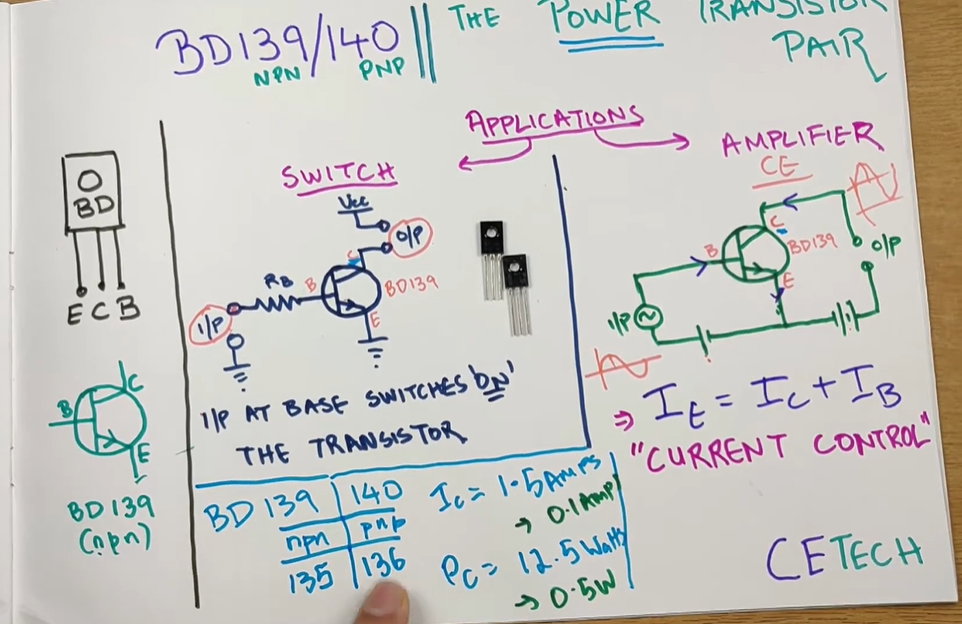 BD139/140
NPN PNP
THE POWER TRANSISTOR
PAIR
APPLICATIONS
BD
E C B
B C
E
BD139
(npn)
SWITCH
Vcc
O/P
C
RB B BD139
I/P
E
I/P AT BASE SWITCHES 'ON'
THE TRANSISTOR
AMPLIFIER
CE
C
B BD139 O/P
E
I/P
⇒ IE = IC + IB
"CURRENT CONTROL"
BD139 | 140
npn | pnp
135 | 136
IC = 1.5AMPS
→ 0.1AMP
PC = 12.5Watts
→ 0.5W
CETECH